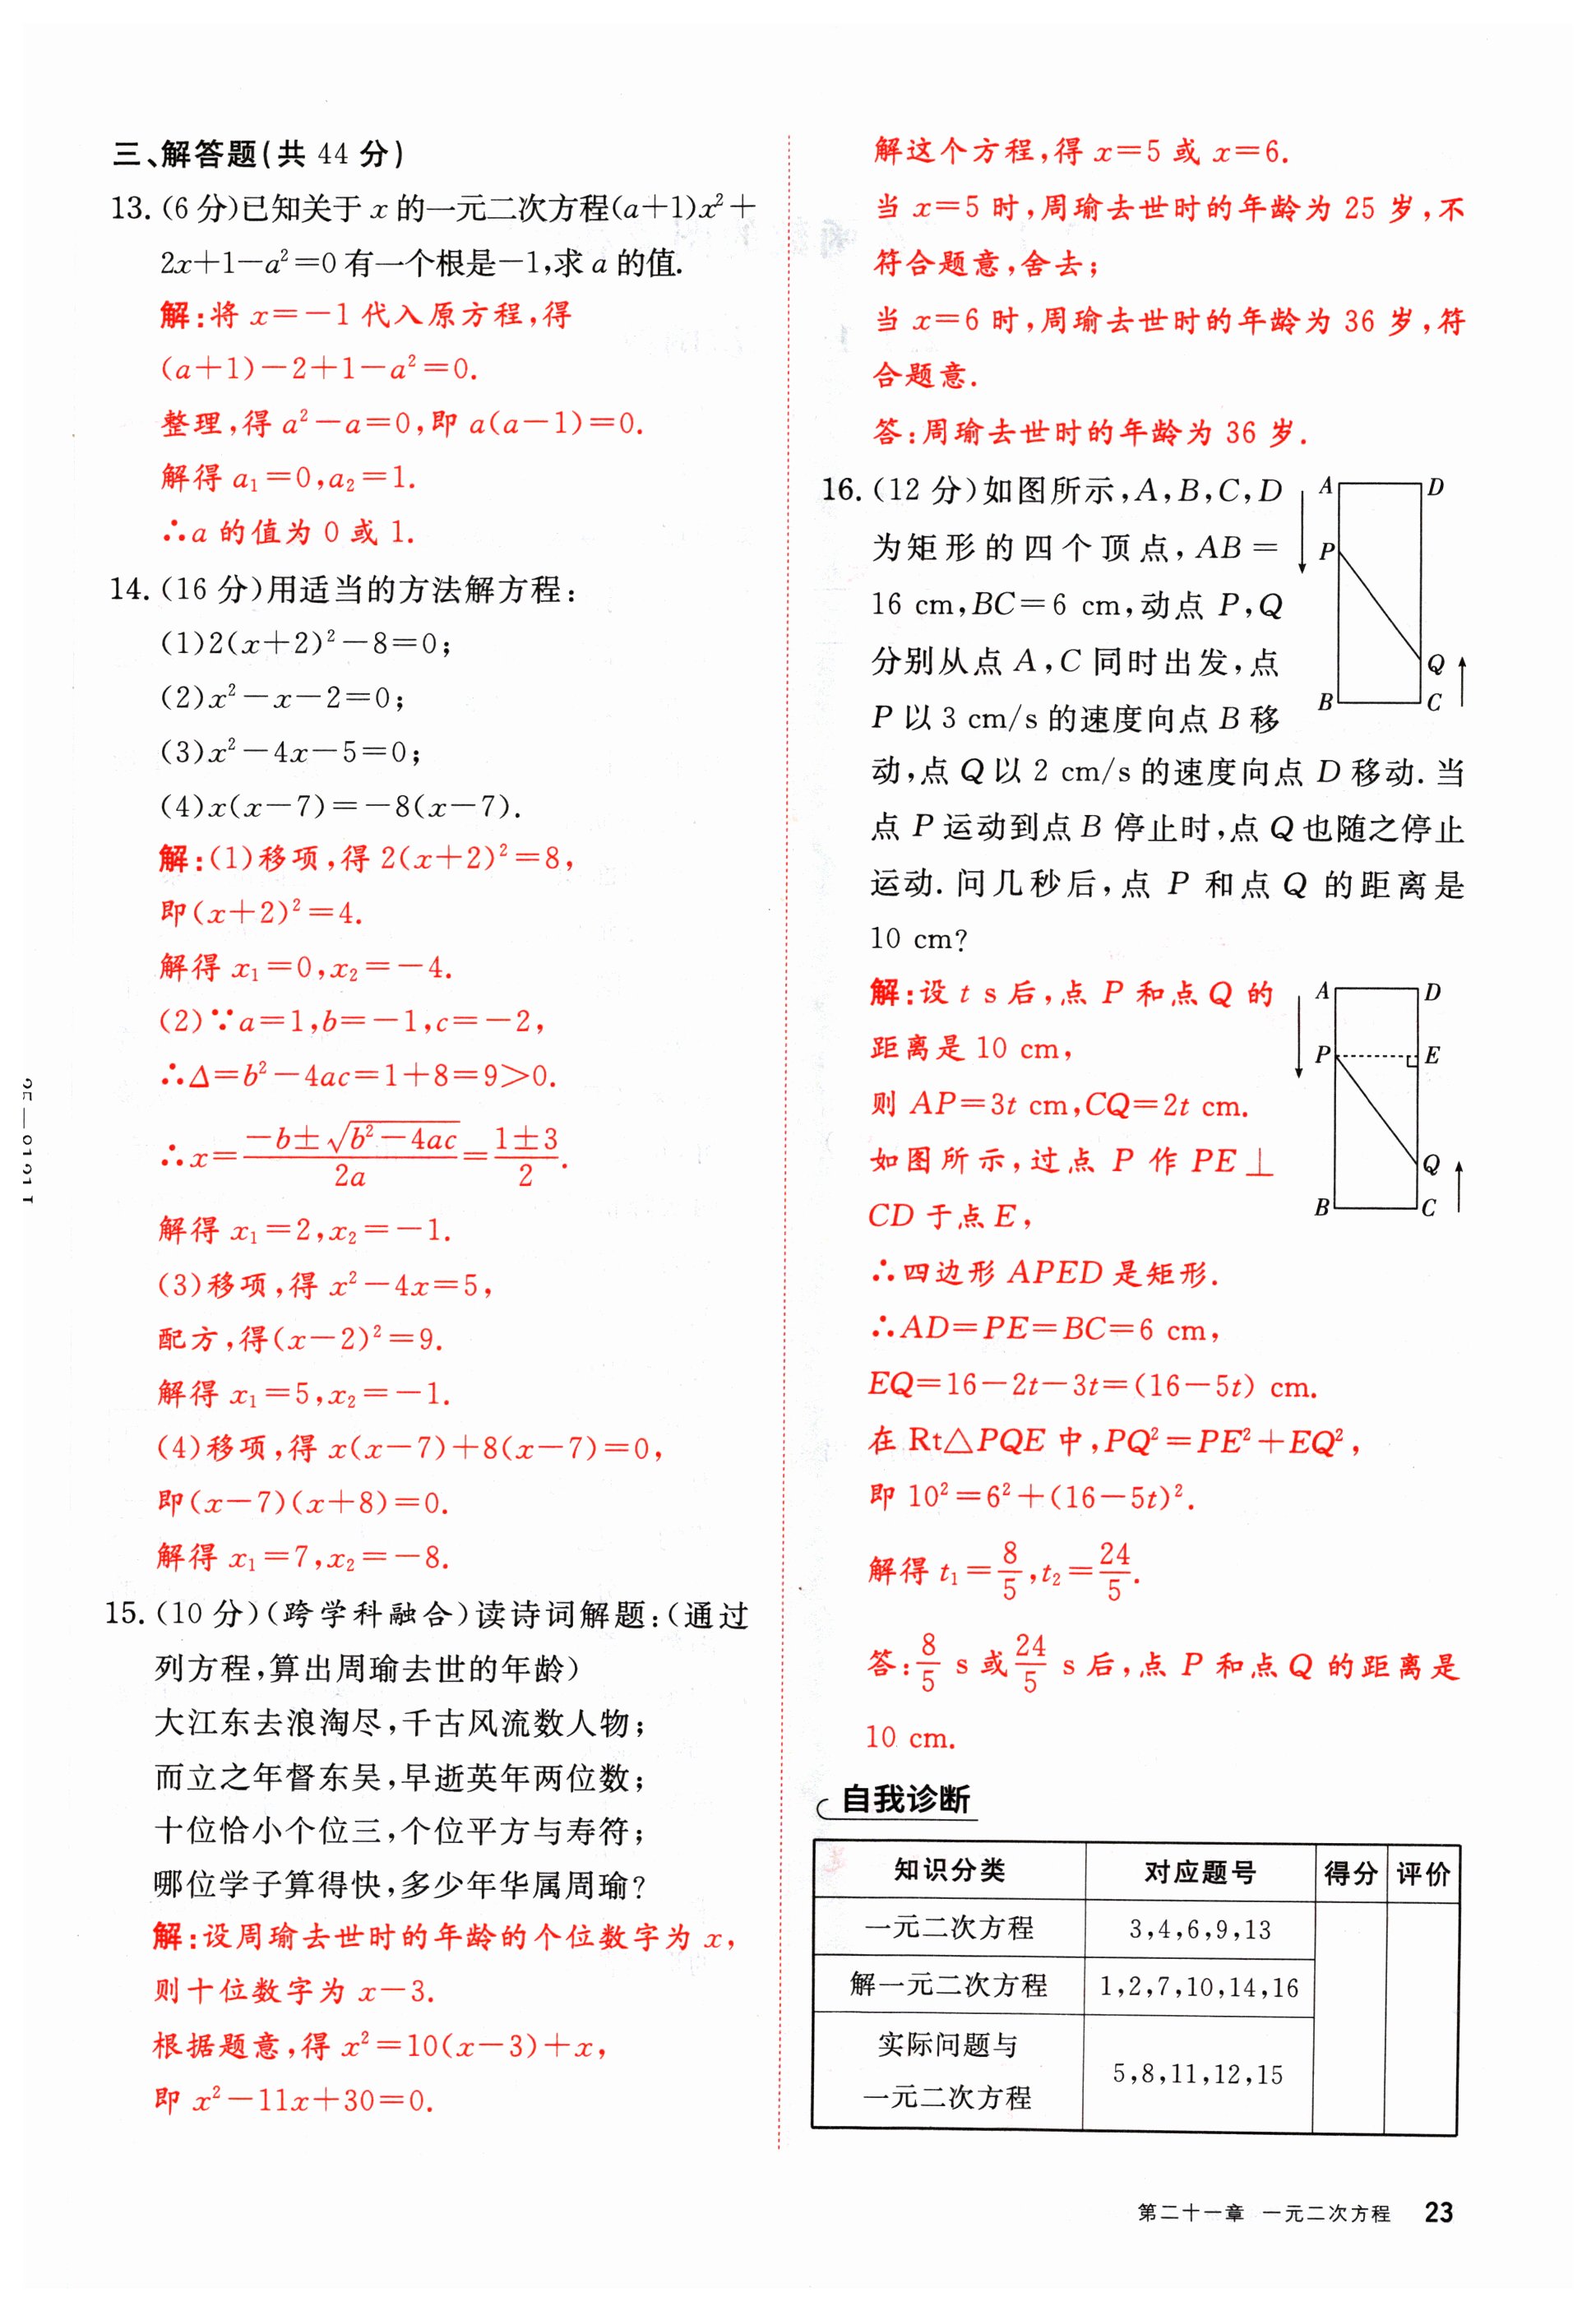 三、解答题(共 44 分)
13.(6分)已知关于 x 的一元二次方程(a+1)x²+
2x+1-a²=0有一个根是-1,求 a 的值.
解:将 x=-1 代入原方程,得
(a+1)-2+1-a²=0.
整理,得 a²-a=0,即 a(a-1)=0.
解得 a₁=0,a₂=1.
∴a 的值为 0 或 1.
14.(16 分)用适当的方法解方程:
(1)2(x+2)²-8=0;
(2)x²-x-2=0;
(3)x²-4x-5=0;
(4)x(x-7)=-8(x-7).
解:(1)移项,得 2(x+2)²=8,
即(x+2)²=4.
解得 x₁=0,x₂=-4.
(2)∵a=1,b=-1,c=-2,
∴Δ=b²-4ac=1+8=9>0.
∴x=(-b±√(b²-4ac))/(2a)=(1±3)/2.
解得 x₁=2,x₂=-1.
(3)移项,得 x²-4x=5,
配方,得(x-2)²=9.
解得 x₁=5,x₂=-1.
(4)移项,得 x(x-7)+8(x-7)=0,
即(x-7)(x+8)=0.
解得 x₁=7,x₂=-8.
15.(10 分)(跨学科融合)读诗词解题:(通过
列方程,算出周瑜去世的年龄)
大江东去浪淘尽,千古风流数人物;
而立之年督东吴,早逝英年两位数;
十位恰小个位三,个位平方与寿符;
哪位学子算得快,多少年华属周瑜?
解:设周瑜去世时的年龄的个位数字为 x,
则十位数字为 x-3.
根据题意,得 x²=10(x-3)+x,
即 x²-11x+30=0.
解这个方程,得 x=5 或 x=6.
当 x=5 时,周瑜去世时的年龄为 25 岁,不
符合题意,舍去;
当 x=6 时,周瑜去世时的年龄为 36 岁,符
合题意.
答:周瑜去世时的年龄为 36 岁.
16.(12 分)如图所示,A,B,C,D
为矩形的四个顶点,AB=
16 cm,BC=6 cm,动点 P,Q
分别从点 A,C 同时出发,点
P 以 3 cm/s 的速度向点 B 移
动,点 Q 以 2 cm/s 的速度向点 D 移动. 当
点 P 运动到点 B 停止时,点 Q 也随之停止
运动. 问几秒后,点 P 和点 Q 的距离是
10 cm?
A D
P
Q
B C
解:设 t s 后,点 P 和点 Q 的
距离是 10 cm,
则 AP=3t cm,CQ=2t cm.
如图所示,过点 P 作 PE⊥
CD 于点 E,
∴四边形 APED 是矩形.
∴AD=PE=BC=6 cm,
EQ=16-2t-3t=(16-5t) cm.
在 Rt△PQE 中,PQ²=PE²+EQ²,
即 10²=6²+(16-5t)².
解得 t₁=8/5,t₂=24/5.
答:8/5 s 或 24/5 s 后,点 P 和点 Q 的距离是
10 cm.
A D
P E
Q
B C
自我诊断
知识分类 对应题号 得分 评价
一元二次方程 3,4,6,9,13
解一元二次方程 1,2,7,10,14,16
实际问题与
一元二次方程 5,8,11,12,15
第二十一章 一元二次方程 23